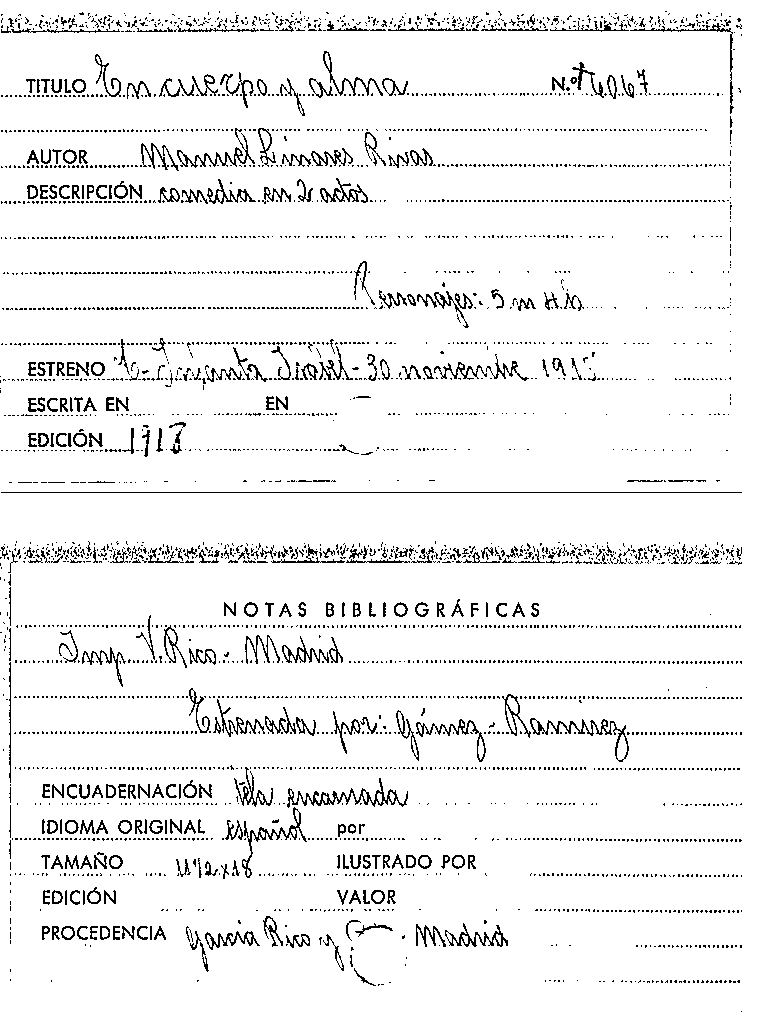 TITULO En cuerpo y alma N.º 6067
AUTOR Manuel Linares Rivas
DESCRIPCIÓN comedia en 2 actos
Personajes: 5 m 4 h
ESTRENO Infanta Isabel - 30 noviembre
ESCRITA EN EN —
EDICIÓN 1918
NOTAS BIBLIOGRÁFICAS
Imp V. Rico - Madrid
Estrenada por: Gámez - Ramirez
ENCUADERNACIÓN tela encarnada
IDIOMA ORIGINAL español por
TAMAÑO ILUSTRADO POR
EDICIÓN VALOR
PROCEDENCIA García Rico y Madrid